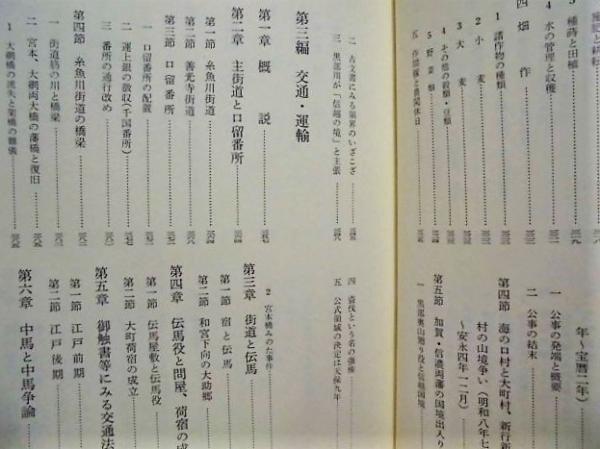 施肥と耕転
5 種蒔と田植
4 水の管理と収穫
四 畑作
1 諸作物の種類
2 小麦
3 大麦
4 その他の穀類・豆類
5 野菜類
五 作間稼と農閑休日
年～宝暦二年)
一 公事の発端と概要
二 公事の結末
第四節 海の口村と大町村、新行新
村の山境争い(明和八年七
～安永四年一二月)
第五節 加賀・信濃両藩の国境出入り
一 黒部奥山廻り役と信越国境
二 古文書にみる堺界のいざこざ
三 黒部川が「信越の境」と主張
第三編 交通・運輸
第一章 概説
第二章 主街道と口留番所
第一節 糸魚川街道
第二節 善光寺街道
第三節 口留番所
一 口留番所の配置
二 運上銀の徴収(千国番所)
三 番所の通行改め
第四節 糸魚川街道の橋梁
一 街道筋の川と橋梁
二 宮本、大網両大橋の藩橋と復旧
1 大網橋の流失と架橋の難儀
四 盗伐という名の強権
五 公式領域の決定は天保九年
2 宮本橋みのた事件
第三章 街道と伝馬
第一節 宿と伝馬
第二節 和宮下向の大助郷
第四章 伝馬役と問屋、荷宿の成
第一節 伝馬屋敷と伝馬役
第二節 大町荷宿の成立
第五章 御触書等にみる交通法
第一節 江戸前期
第二節 江戸後期
第六章 中馬と中馬争論